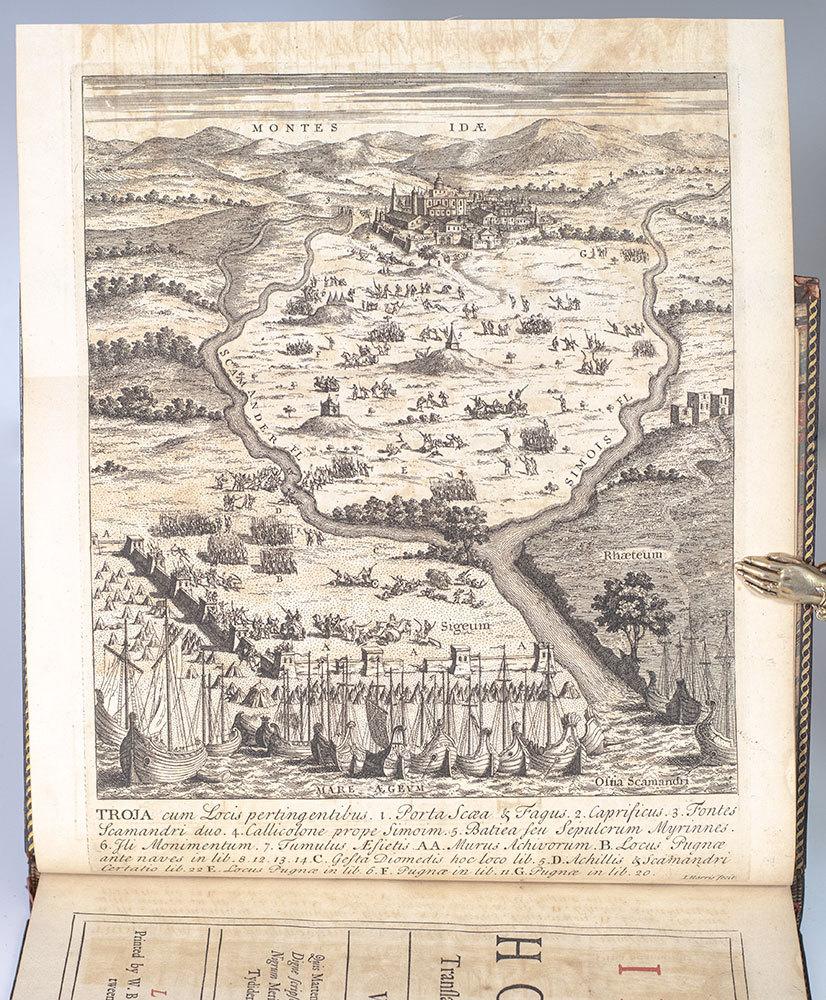 MONTES IDÆ
3
G
SCAMANDER FL
SIMOIS FL
E
D
A
C
B
Rhæteum
Sigeum
A A A
MARE ÆGEUM
Ostia Scamandri
TROJA cum Locis pertingentibus. 1. Porta Scæa & Fagus. 2. Caprificus. 3. Fontes
Scamandri duo. 4. Callicolone prope Simoim. 5. Batiea seu Sepulcrum Myrinnes.
6. Ili Monimentum. 7. Tumulus Æsietis. AA. Murus Achivorum. B. Locus Pugnæ
ante naves in lib. 8. 12. 13. 14 C. Gesta Diomedis hoc loco lib. 5. D. Achillis & Scamandri
Certatio lib. 22 E. Locus Pugnæ in lib. 6. F. Pugnæ in lib. 11 G. Pugnæ in lib. 20.
I. Harris fecit
I
HO
Translat
V
Quis Martem
Digne scripse
Nigrum Meri
Tydide
L
Printed by W. B
tween